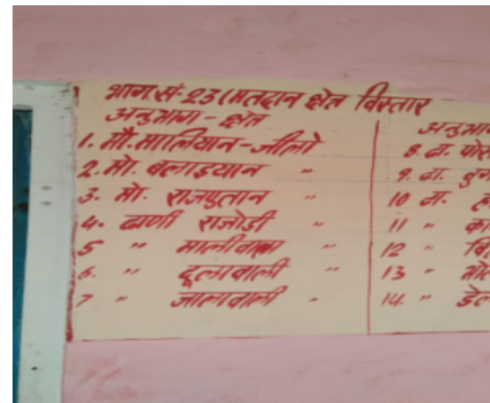 भाग सं. 23 (मतदान क्षेत्र विस्तार
अनुभाग - क्षेत्र
1. मौ. मालियान - जीलो
2. मो. बलाइयान "
3. मो. राजपुतान "
4. ढाणी राजोडी "
5 " मालीवाला "
6. " दूलावाली "
7 " जालावाली "
अनुभाग
8. ढा.
9. ढा.
10 ढा.
11 "
12 "
13 "
14 "